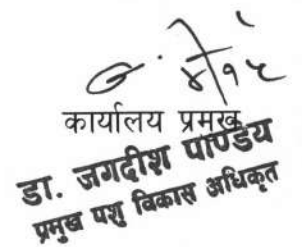 कार्यालय प्रमुख
डा. जगदीश पाण्डेय
प्रमुख पशु विकास अधिकृत